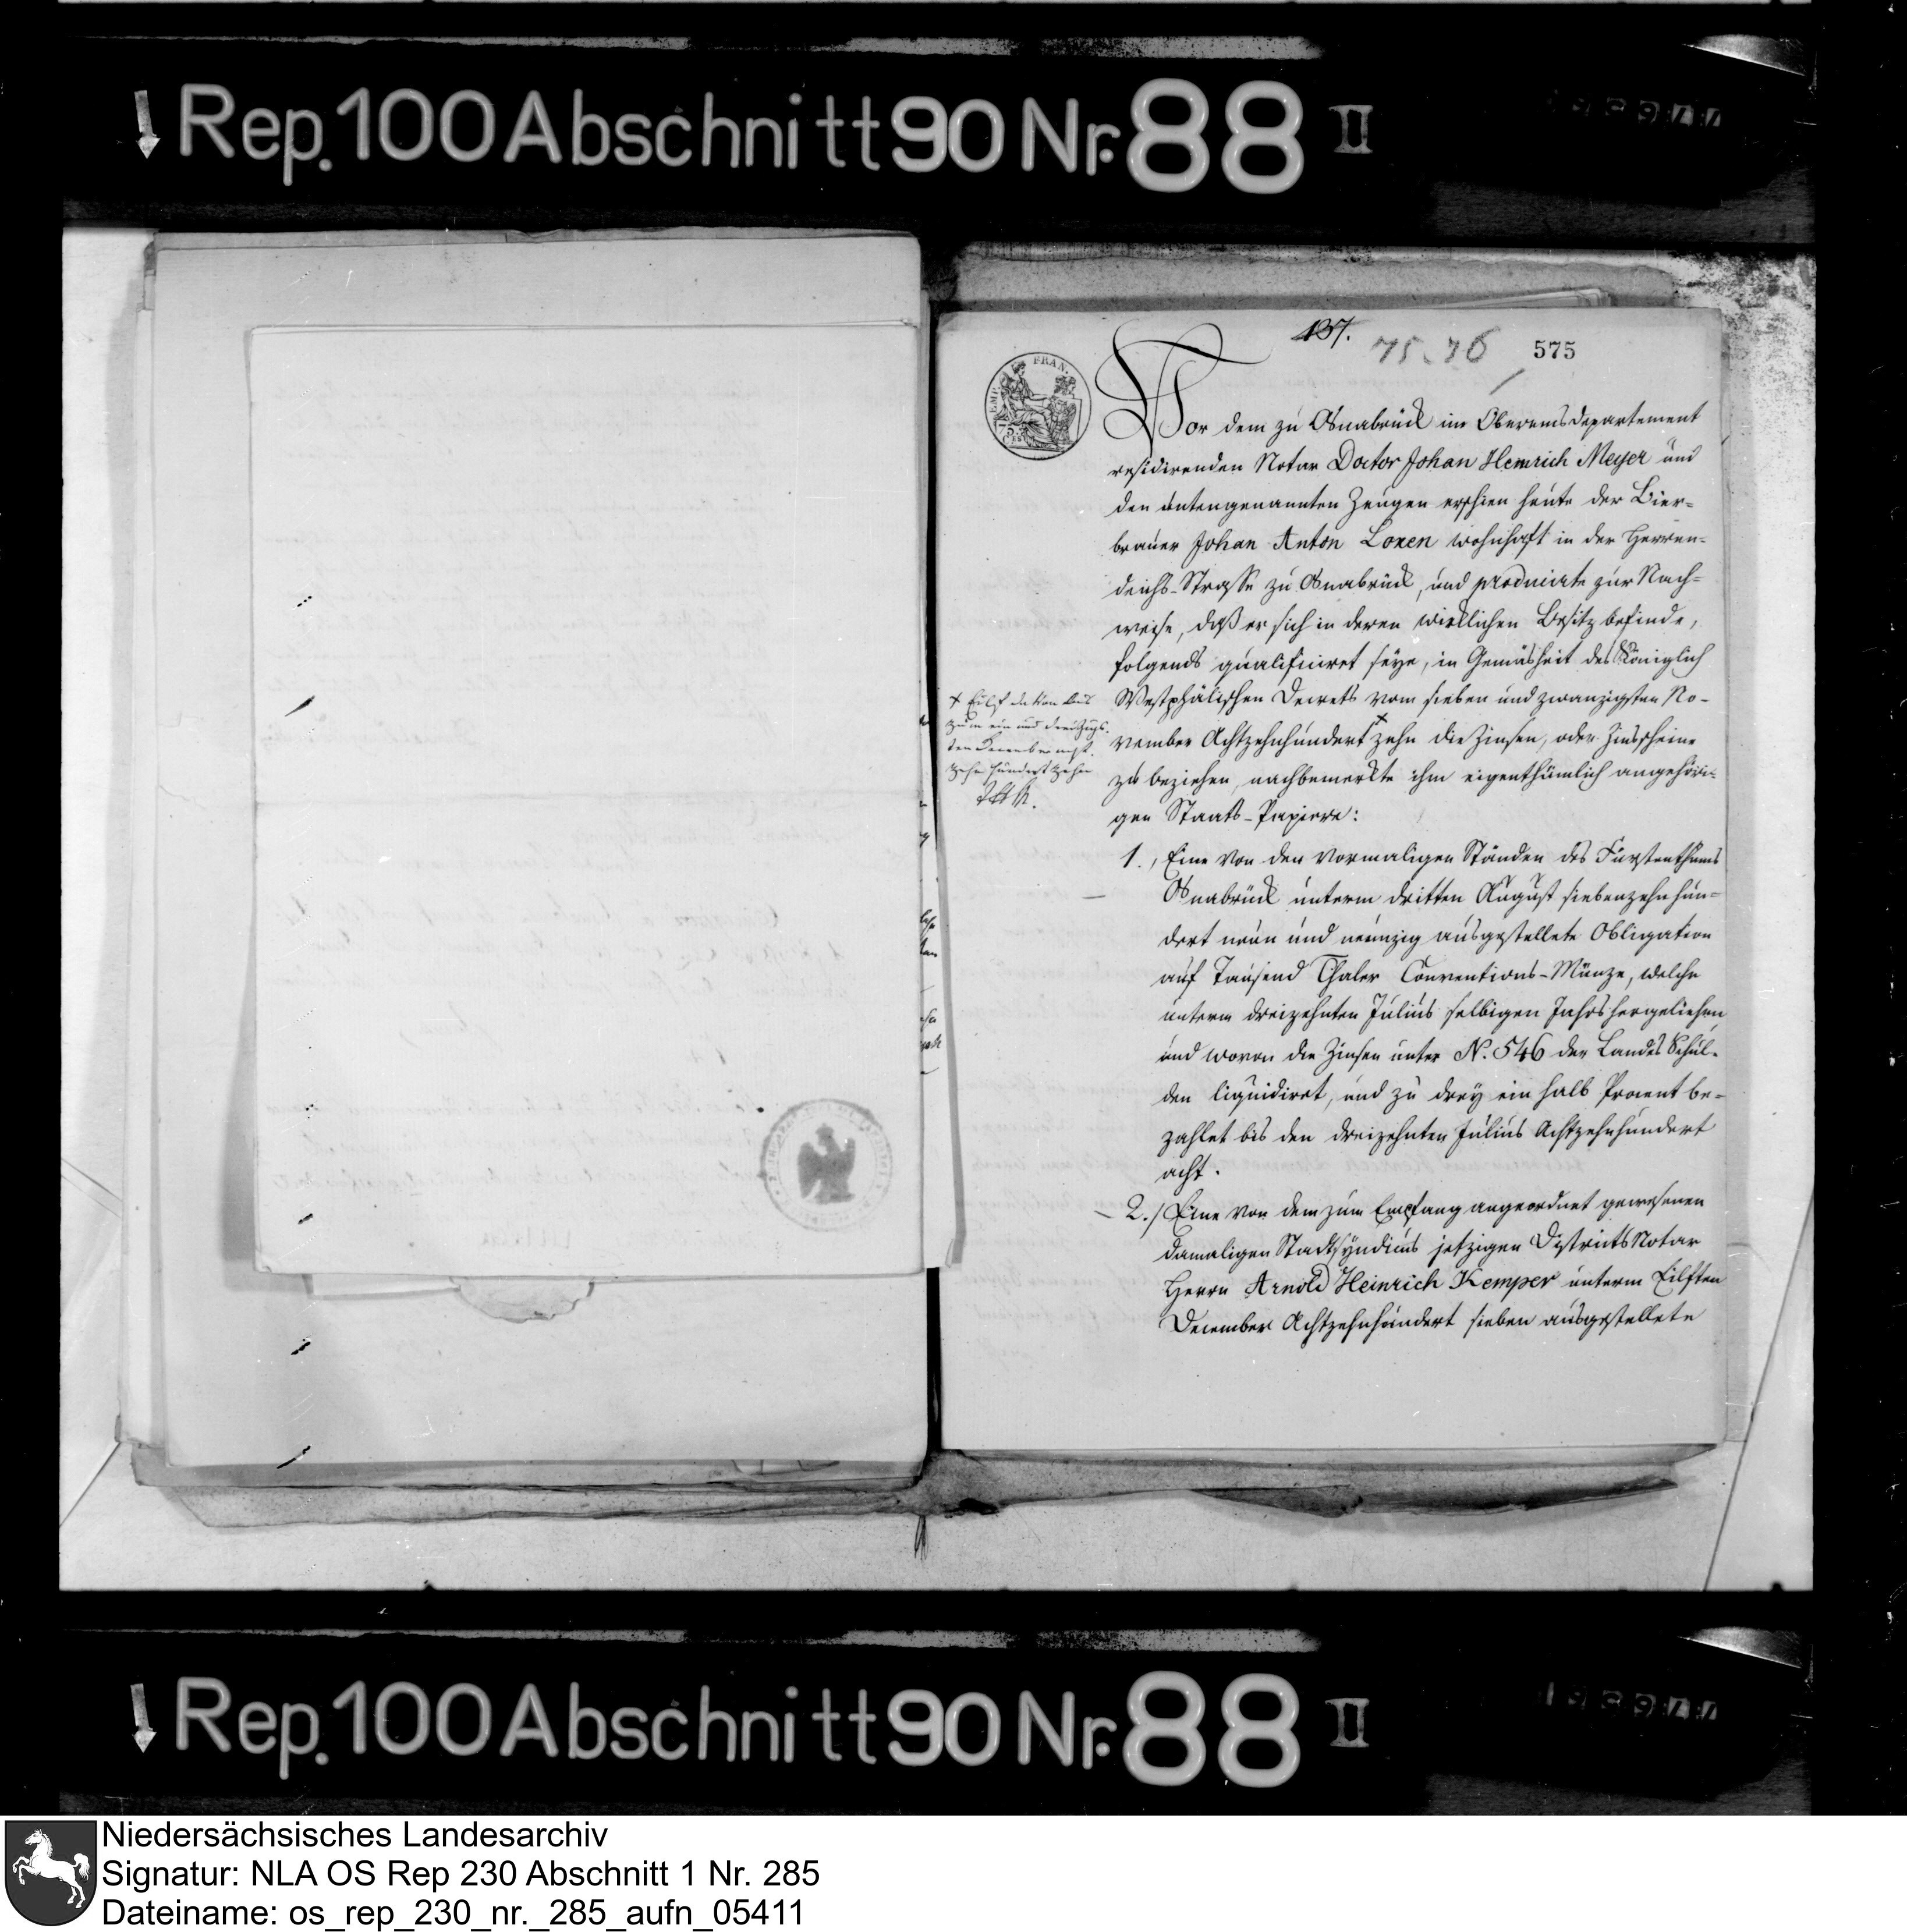 Rep. 100 Abschnitt 90 Nr. 88 II
137.
75.76
575
FRAN.
75.
Vor dem zu Osnabrück im Oberemsdepartement
residirenden Notar Doctor Johan Henrich Meyer und
den untengenannten Zeugen erschien heute der Bier-
brauer Johan Anton Lonen wohnhaft in der Herren-
deichs-Strasse zu Osnabrück, und producirte zur Nach-
weise, daß er sich in deren wirklichen Besitz befinde,
folgends qualificiret seye, in Gemäsheit des Königlich
Westphälischen Decrets vom sieben und zwanzigsten No-
vember Achtzehnhundert + zehn die Zinsen, oder Zinsscheine
zu beziehen, nachbemerkte ihm eigenthümlich angehöri-
gen Staats-Papiere:
+ Eilf
zum ein und dreißigs-
ten December acht-
zehn hundert zehn
1., Eine von den vormaligen Ständen des Fürstenthums
Osnabrück unterm dritten August siebenzehnhun-
dert neun und neunzig ausgestellete Obligation
auf Tausend Thaler Conventions-Münze, welche
unterm dreizehnten Julius selbigen Jahrs hergeliehen
und wovon die Zinsen unter N. 546 der Landes Schul-
den liquidiret, und zu drey ein halb Procent be-
zahlet bis den dreizehnten Julius Achtzehnhundert
acht.
2./ Eine von dem zum Empfang angeordnet gewesenen
damaligen Stadtsyndicus jetzigen Districts Notar
Herrn Arnold Heinrich Kemper unterm Eilften
December Achtzehnhundert sieben ausgestellete
Rep. 100 Abschnitt 90 Nr. 88 II
Niedersächsisches Landesarchiv
Signatur: NLA OS Rep 230 Abschnitt 1 Nr. 285
Dateiname: os_rep_230_nr._285_aufn_05411